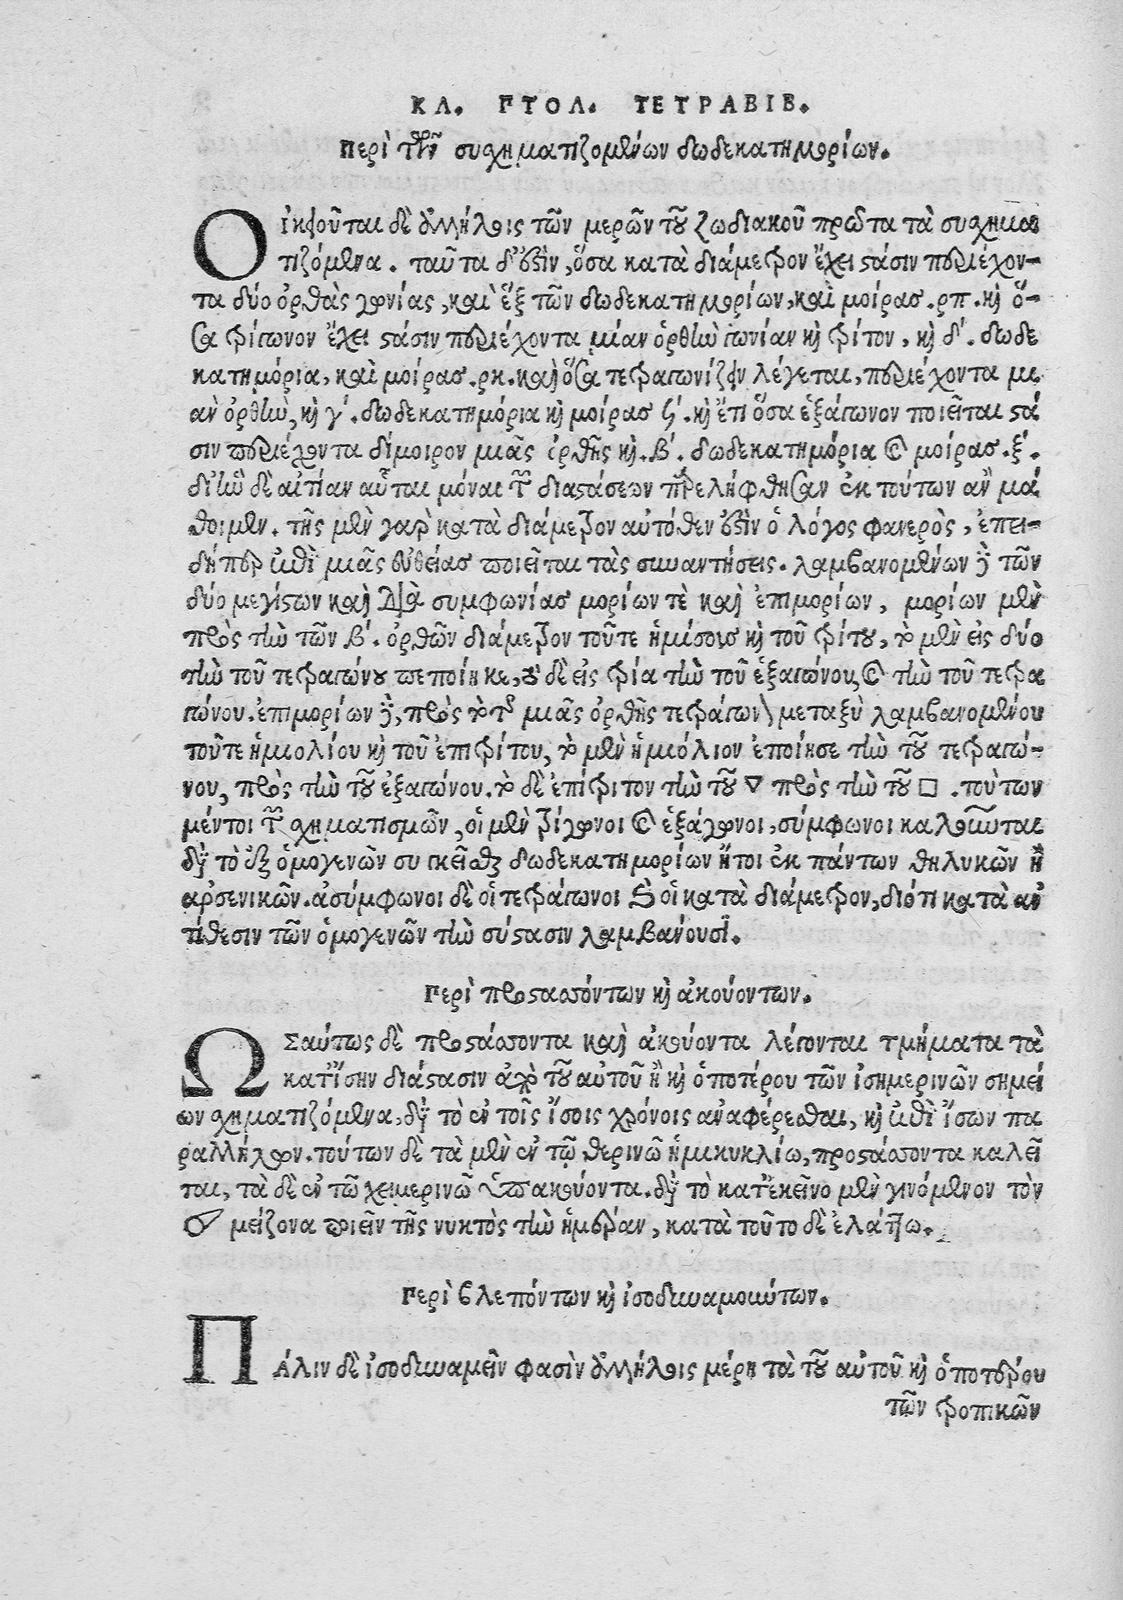 ΚΛ. ΠΤΟΛ. ΤΕΤΡΑΒΙΒ.
Περὶ τῶν συσχηματιζομένων δωδεκατημορίων.
ΟἸκειοῦται δὲ ἀλλήλοις τῶν μερῶν τοῦ ζωδιακοῦ πρῶτα τὰ συσχημα
τιζόμενα. ταῦτα δ' ἐστὶν, ὅσα κατὰ διάμετρον ἔχει στάσιν περιέχον–
τα δύο ὀρθὰς γωνίας, καὶ ἓξ τῶν δωδεκατημορίων, καὶ μοίρας. ρπ. καὶ ὅ–
σα τρίγωνον ἔχει στάσιν περιέχοντα μίαν ὀρθὴν γωνίαν καὶ τρίτον, καὶ δ'. δωδε
κατημόρια, καὶ μοίρας. ρκ. καὶ ὅσα τετραγωνίζειν λέγεται, περιέχοντα μι
αν ὀρθὴν, καὶ γ'. δωδεκατημόρια καὶ μοίρας ϟ'. καὶ ἔτι ὅσα ἑξάγωνον ποιεῖται στά
σιν περιέχοντα δίμοιρον μιᾶς ὀρθῆς καὶ. β'. δωδεκατημόρια καὶ μοίρας. ξ.
δι' ἣν δὲ αἰτίαν αὗται μόναι τῶν διαστάσεων παρελήφθησαν ἐκ τούτων ἂν μά
θοιμεν. τῆς μὲν γὰρ κατὰ διάμετρον αὐτόθεν ἐστὶν ὁ λόγος φανερὸς, ἐπει–
δήπερ ἐπὶ μιᾶς εὐθείας ποιεῖται τὰς συναντήσεις. λαμβανομένων δὲ τῶν
δύο μεγίστων καὶ διὰ συμφωνίας μορίων τὲ καὶ ἐπιμορίων, μορίων μὲν
πρὸς τὴν τῶν β'. ὀρθῶν διάμετρον τοῦτε ἡμίσους καὶ τοῦ τρίτου, τὸ μὲν εἰς δύο
τὴν τοῦ τετραγώνου πεποίηκε, τὸ δὲ εἰς τρία τὴν τοῦ ἑξαγώνου, καὶ τὴν τοῦ τετρα
γώνου. ἐπιμορίων δὲ, πρὸς τὸ τῆς μιᾶς ὀρθῆς τετράγωνον μεταξὺ λαμβανομένου
τοῦτε ἡμιολίου καὶ τοῦ ἐπιτρίτου, τὸ μὲν ἡμιόλιον ἐποίησε τὴν τοῦ τετραγώ–
νου, πρὸς τὴν τοῦ ἑξαγώνου. τὸ δὲ ἐπίτριτον τὴν τοῦ ▽ πρὸς τὴν τοῦ □. τούτων
μέντοι τῶν σχηματισμῶν, οἱ μὲν τρίγωνοι καὶ ἑξάγωνοι, σύμφωνοι καλοῦνται
διὰ τὸ ἐξ ὁμογενῶν συγκεῖσθαι δωδεκατημορίων ἤτοι ἐκ πάντων θηλυκῶν ἢ
ἀρσενικῶν. ἀσύμφωνοι δὲ οἱ τετράγωνοι καὶ οἱ κατὰ διάμετρον, διότι κατὰ ἀν
τίθεσιν τῶν ὁμογενῶν τὴν σύστασιν λαμβάνουσι.
Περὶ προστασσόντων καὶ ἀκουόντων.
ΩΣαύτως δὲ προστάσσοντα καὶ ἀκούοντα λέγονται τμήματα τὰ
κατ' ἴσην διάστασιν ἀπὸ τοῦ αὐτοῦ ἢ καὶ ὁποτέρου τῶν ἰσημερινῶν σημεί
ων σχηματιζόμενα, διὰ τὸ ἐν τοῖς ἴσοις χρόνοις ἀναφέρεσθαι, καὶ ἐπὶ ἴσων πα
ραλλήλων. τούτων δὲ τὰ μὲν ἐν τῷ θερινῷ ἡμικυκλίῳ, προστάσσοντα καλεῖ
ται, τὰ δὲ ἐν τῷ χειμερινῷ ὑπακούοντα. διὰ τὸ κατ' ἐκεῖνο μὲν γινόμενον τὸν
☉ μείζονα ποιεῖν τῆς νυκτὸς τὴν ἡμέραν, κατὰ τοῦτο δὲ ἐλάττω.
Περὶ βλεπόντων καὶ ἰσοδυναμούντων.
ΠΆλιν δὲ ἰσοδυναμεῖν φασὶν ἀλλήλοις μέρη τὰ τοῦ αὐτοῦ καὶ ὁποτέρου
τῶν τροπικῶν